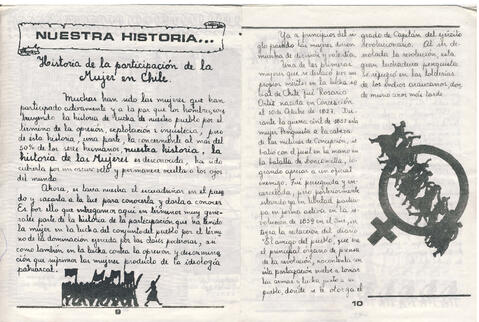 NUESTRA HISTORIA...
Historia de la participación de la
Mujer en Chile.
Muchas han sido las mujeres que han
participado activamente y a la par que los hombres, cons
truyendo la historia de lucha de nuestro pueblo por el
término de la opresión, explotación e injusticia, pero
de esta historia, una parte, la concerniente al más del
50% de los seres humanos nuestra historia, la
historia de las Mujeres es desconocida, ha sido
cubierta por un oscuro velo y permanece oculta a los ojos
del mundo.
Ahora, es tarea nuestra el
y sacarla a la luz para conocerla y darla a conocer.
Es por ello que entregamos aquí en términos muy gene-
rales parte de la historia de la participación que ha tenido
la mujer en la lucha del conjunto del pueblo por el térmi
no de la dominación ejercida por las clases poderosas, así
como también en la lucha contra la opresión y discrimina
ción que sufrimos las mujeres producto de la ideología
patriarcal.
9
Ya a principios del si
glo pasado las mujeres dieron
muestra de decisión y valentía.
Una de las primeras
mujeres que se destacó por sus
propios méritos en la lucha so
cial de Chile fué Rosario
Ortiz nacida en Concepción
el 10 de Octubre de 1827. Du-
rante la guerra civil de 1851 esta
mujer penquista a la cabeza
de las milicias de Concepción, se
batió con el fusil en la mano en
la batalla de Loncomilla,
logrando apresar a un oficial
enemigo. Fué perseguida y en-
carcelada, pero posteriormente
estando ya en libertad partici-
pa en forma activa en la re-
volución de 1859 en el Sur, par
ticipa en la redacción del diario
"El amigo del pueblo", que fue
el principal órgano de prensa
de la revolución, no contenta con
esta participación vuelve a tomar
las armas y lucha junto a su
pueblo, donde se le otorga el
grado de Capitán del ejército
revolucionario. Al ser de-
rrotada la revolución, esta
gran luchadora penquista
se refugió en las tolderías
de los indios araucanos, don
de murió años más tarde.
10